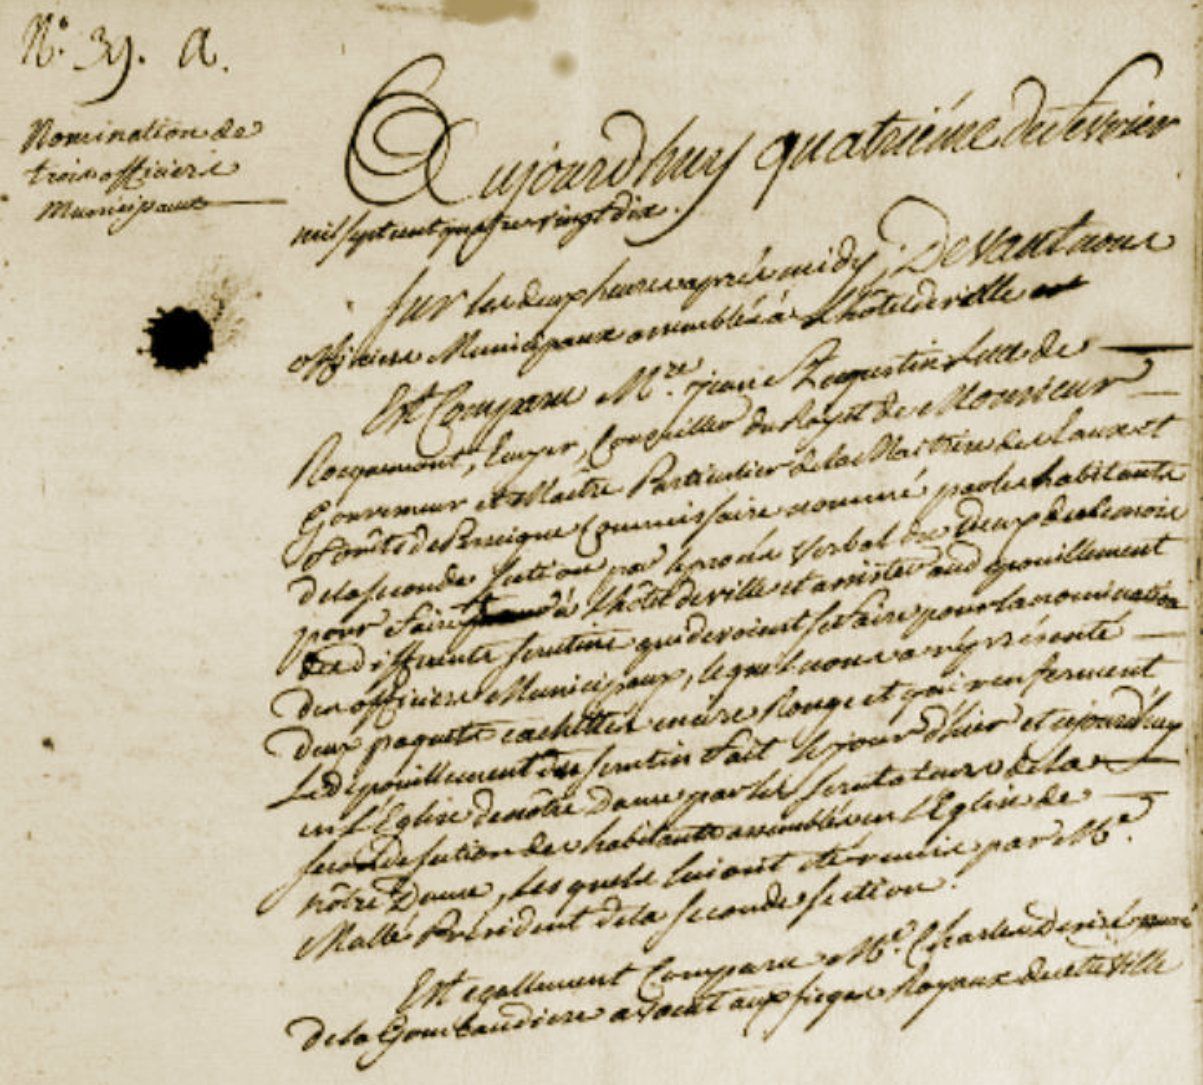 N.° 39. A.
Nomination de
trois officiers
Municipaux
Aujourd'huy quatriéme du Fevrier
mil sept cent quatre vingt dix.
sur les deux heures après midy, Devant nous
officiers Municipaux assemblés à L'hôtel de ville
Est Comparu M.re jean Augustin Luc de
Rocquemont, Ecuyer, Conseiller du Roy et de Monsieur
Gouverneur et Maître Particulier de la Maitrise des Eaux et
Forêts de Perseigne Commissaire nommé par les habitants
de la seconde section par le procès verbal du deux de ce mois
pour faire à L'hôtel de ville et assister aud epouillement
des differents scrutins qui devoient se faire pour la nomination
des officiers Municipaux, lequel nous a représenté
deux paquets cachettés en cire Rouge et qui renferment
Le depouillement du scrutin Fait le jour d'hier et aujourd'huy
en L'Eglise de nôtre Dame par les scrutateurs de la
seconde section des habitants assemblés en L'Eglise de
nôtre Dame, Lesquels lui ont été remis par M.e
Mallé Président de la seconde section.
Est egallement Comparu M.e Charles Desiré
de la Gombaudiere avocat aux sieges Royaux de cette Ville